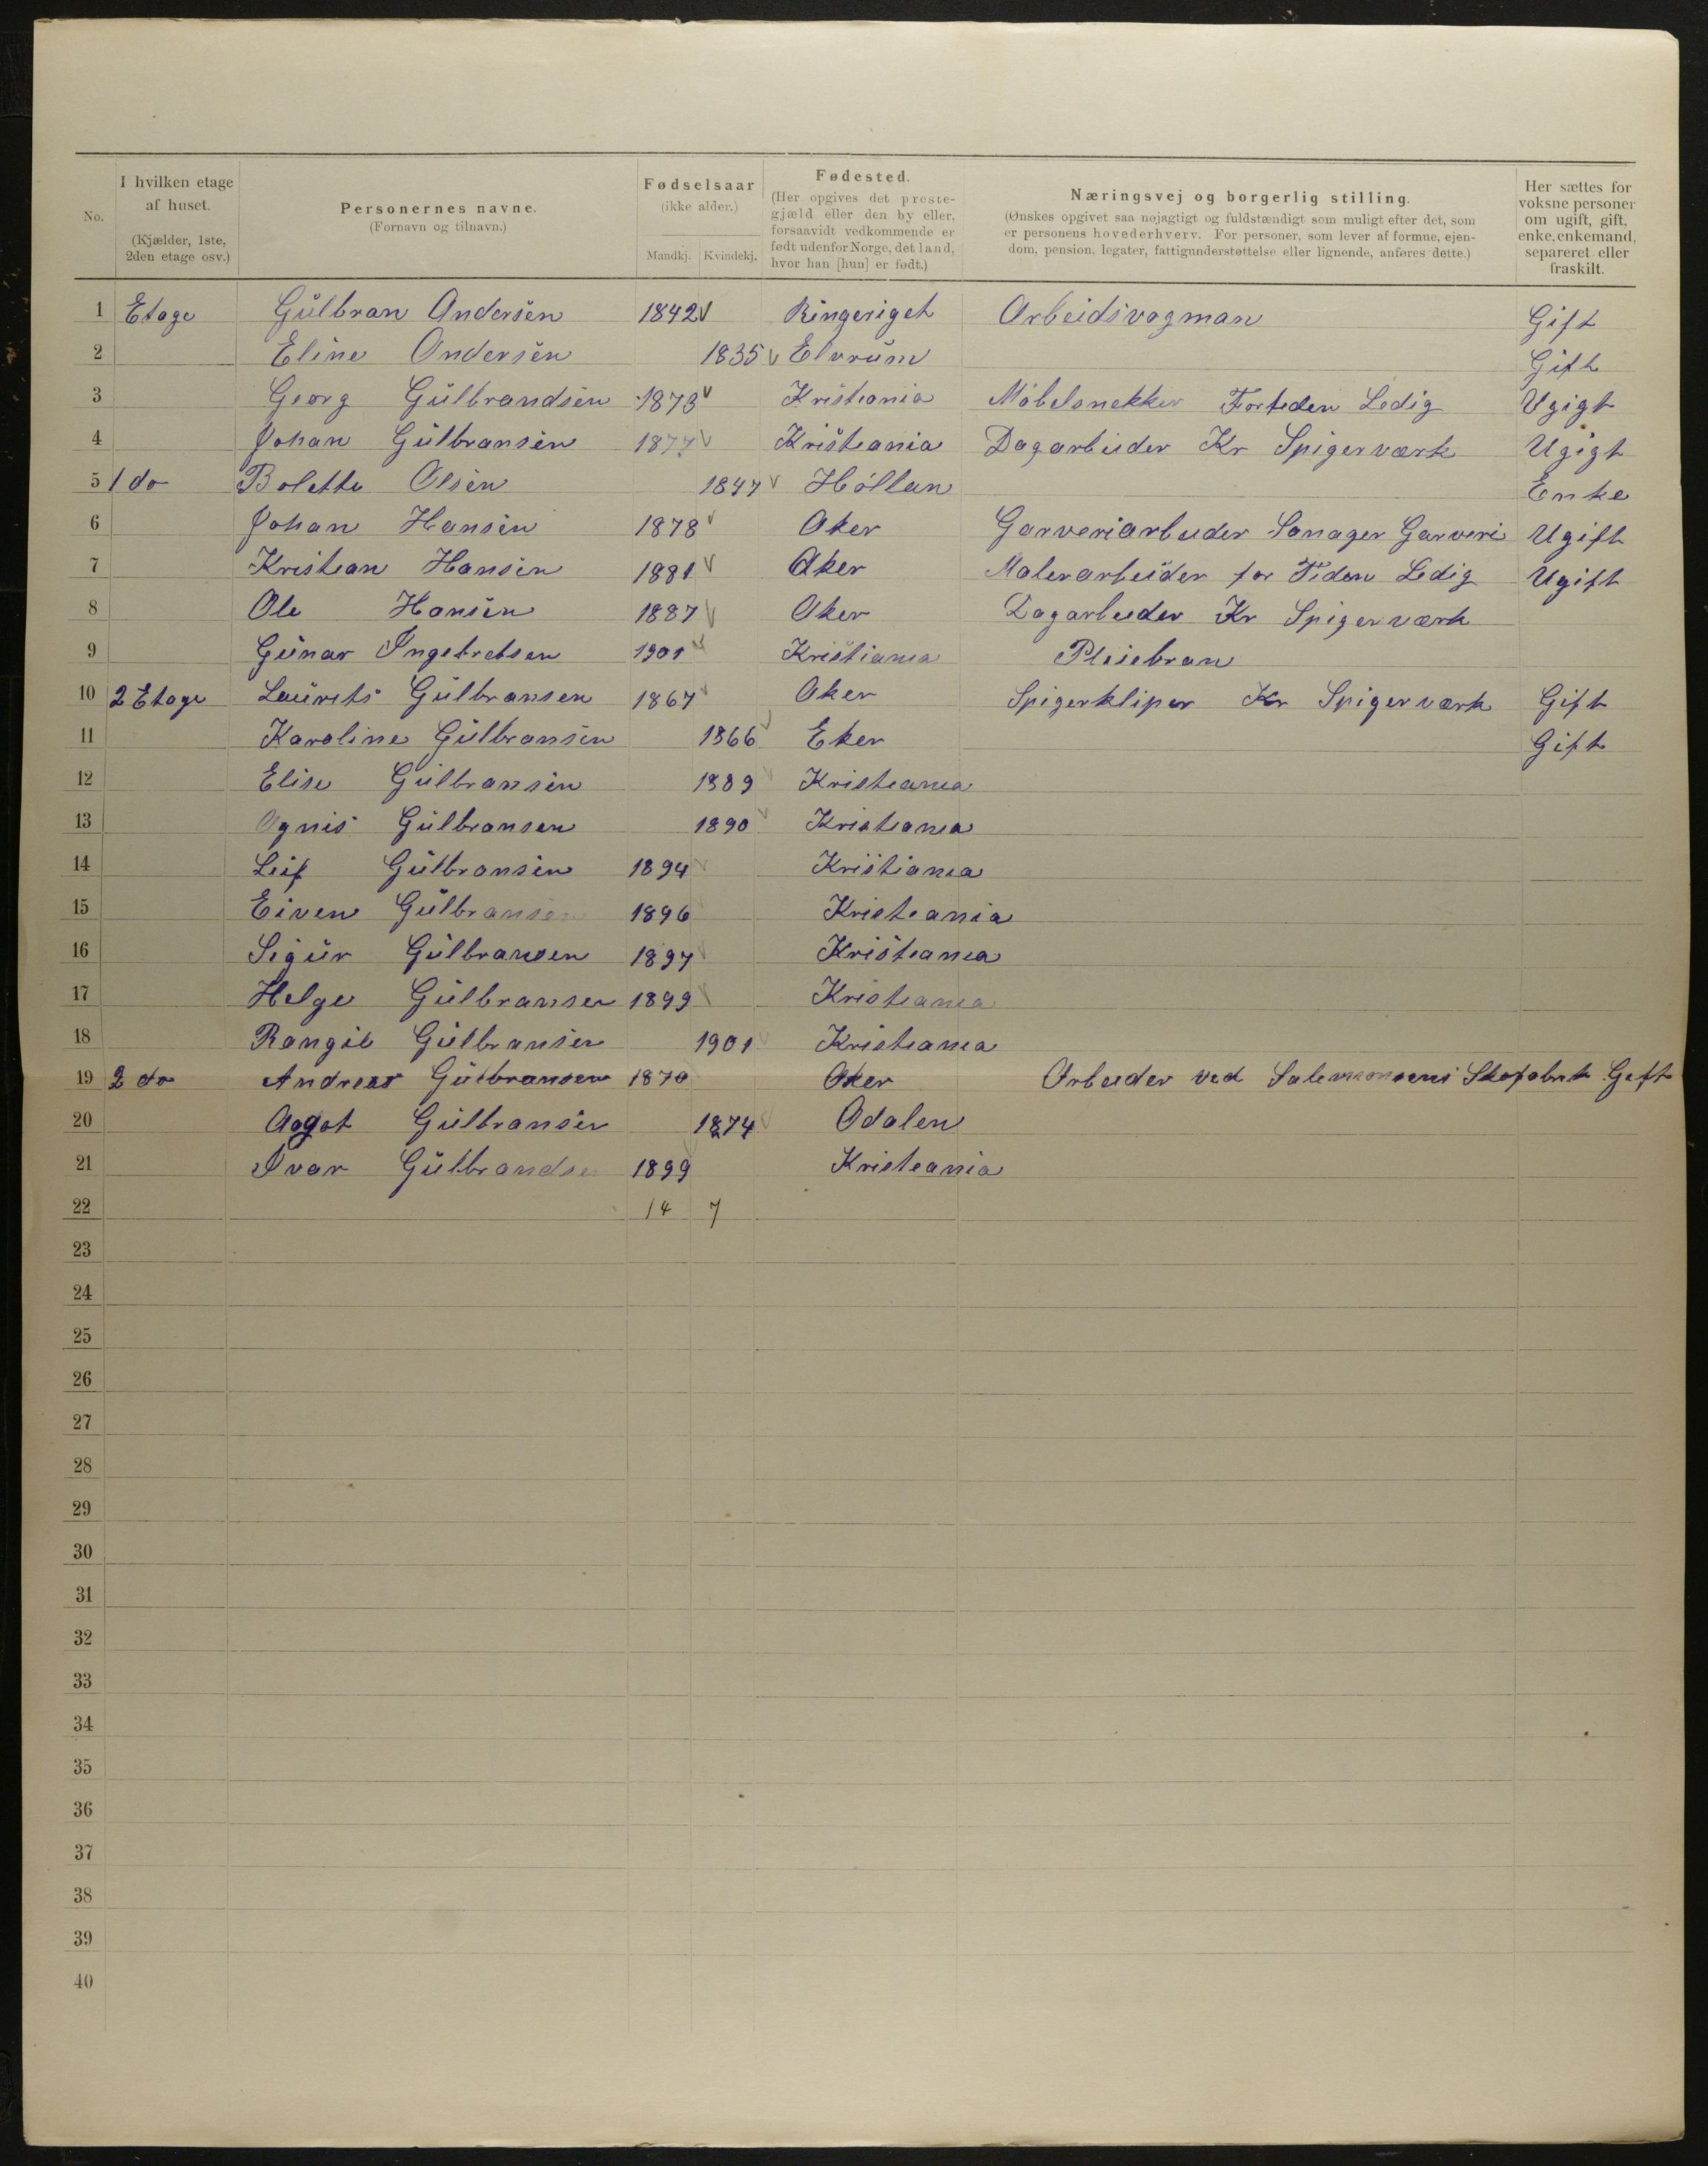 No. I hvilken etage af huset. (Kjælder, 1ste, 2den etage osv.) Personernes navne. (Fornavn og tilnavn.) Fødselsaar (ikke alder.) Mandkj. Kvindekj. Fødested. (Her opgives det prestegjæld eller den by eller, forsaavidt vedkommende er født udenfor Norge, det land, hvor han [hun] er født.) Næringsvej og borgerlig stilling. (Ønskes opgivet saa nøjagtigt og fuldstændigt som muligt efter det, som er personens hovederhverv. For personer, som lever af formue, ejendom, pension, legater, fattigunderstøttelse eller lignende, anføres dette.) Her sættes for voksne personer om ugift, gift, enke, enkemand, separeret eller fraskilt.
1 Etage Gulbran Andersen 1842 Ringeriget Arbeidsvogman Gift
2 Eline Andersen 1835 Elvrum Gift
3 Georg Gulbrandsen 1873 Kristiania Møbelsnekker Fortiden Ledig Ugigt
4 Johan Gulbransen 1877 Kristiania Dagarbeider Kr Spigerværk Ugigt
5 1 do Bolette Olsen 1847 Höllan Enke
6 Johan Hansen 1878 Aker Garveriarbeider Garveri Ugift
7 Kristian Hansen 1881 Aker Malerarbeider for Tiden Ledig Ugift
8 Ole Hansen 1887 Aker Dagarbeider Kr Spigerværk
9 Gunar Ingebretsen 1901 Kristiania Pleiebran
10 2 Etage Laurits Gulbransen 1867 Aker Spigerkliper Kr Spigerværk Gift
11 Karoline Gulbransen 1866 Eker Gift
12 Elise Gulbransen 1889 Kristiania
13 Agnis Gulbransen 1890 Kristiania
14 Leif Gulbransen 1894 Kristiania
15 Eiven Gulbransen 1896 Kristiania
16 Sigur Gulbransen 1897 Kristiania
17 Helge Gulbransen 1899 Kristiania
18 Rangil Gulbransen 1901 Kristiania
19 2 do Andreas Gulbransen 1870 Aker Arbeider ved Salemonsens Skofabrik Gift
20 Aagot Gulbransen 1874 Odalen
21 Ivar Gulbrandsen 1899 Kristiania
22 14 7
23
24
25
26
27
28
29
30
31
32
33
34
35
36
37
38
39
40